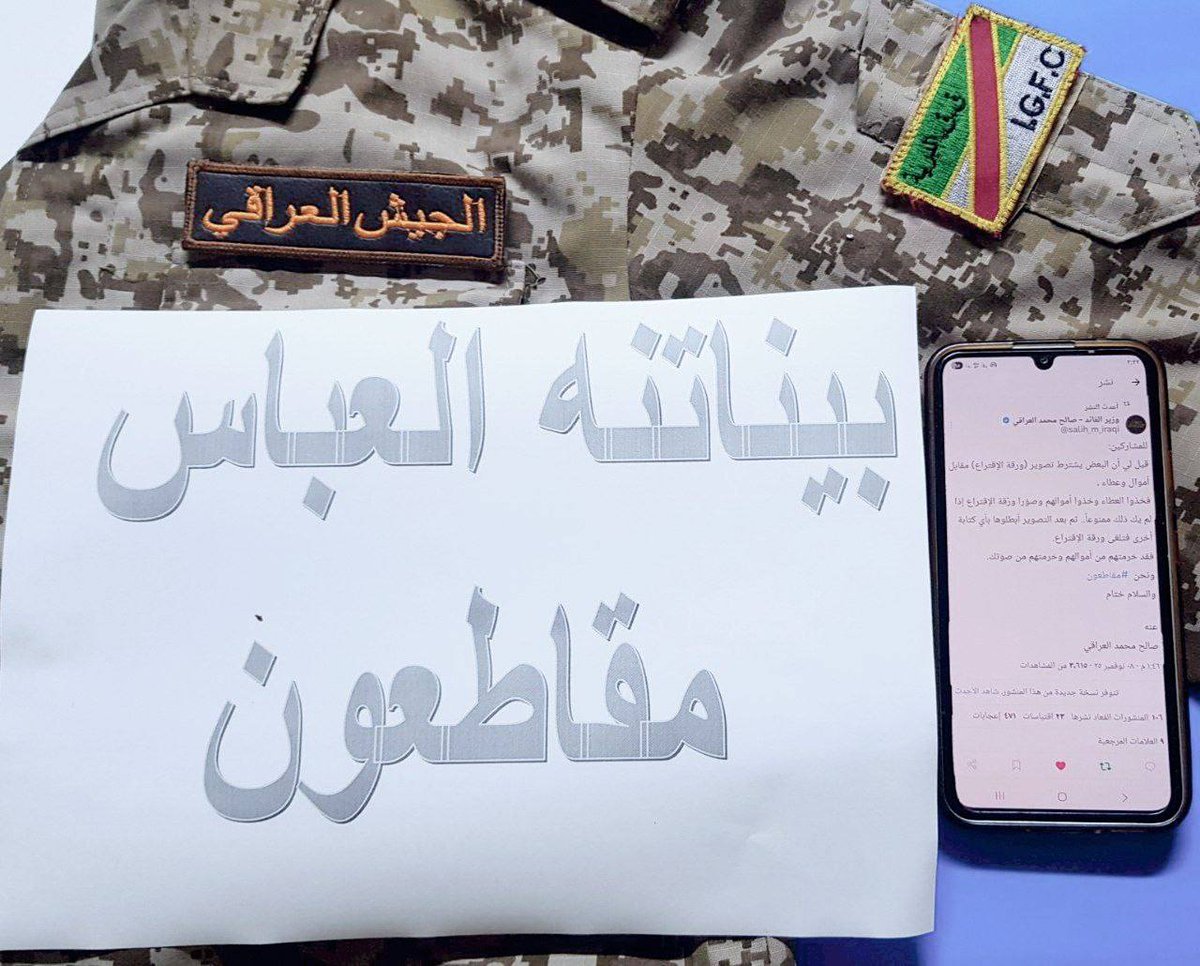 الجيش العراقي
I.G.F.C
قيادة القوات البرية
بيناتنه العباس
مقاطعون
نشر
أحدث النشر
وزير القائد - صالح محمد العراقي
@salih_m_iraqi
للمشاركين:
قيل لي أن البعض يشترط تصوير (ورقة الإقتراع) مقابل
أموال وعطاء .
فخذوا العطاء وخذوا أموالهم وصوّرا ورقة الإقتراع إذا
لم يك ذلك ممنوعاً.. ثم بعد التصوير أبطلوها بأي كتابة
أخرى فتلغى ورقة الإقتراع.
فقد حرمتهم من أموالهم وحرمتهم من صوتك.
ونحن #مقاطعون
والسلام ختام
عنه
صالح محمد العراقي
١:٤٦ م · ٠٨ نوفمبر ٢٥ · ٣،٦١٥ من المشاهدات
تتوفر نسخة جديدة من هذا المنشور شاهد الأحدث
١٠٦ المنشورات المُعاد نشرها ٢٣ اقتباسات ٤٧١ إعجابات
٩ العلامات المرجعية